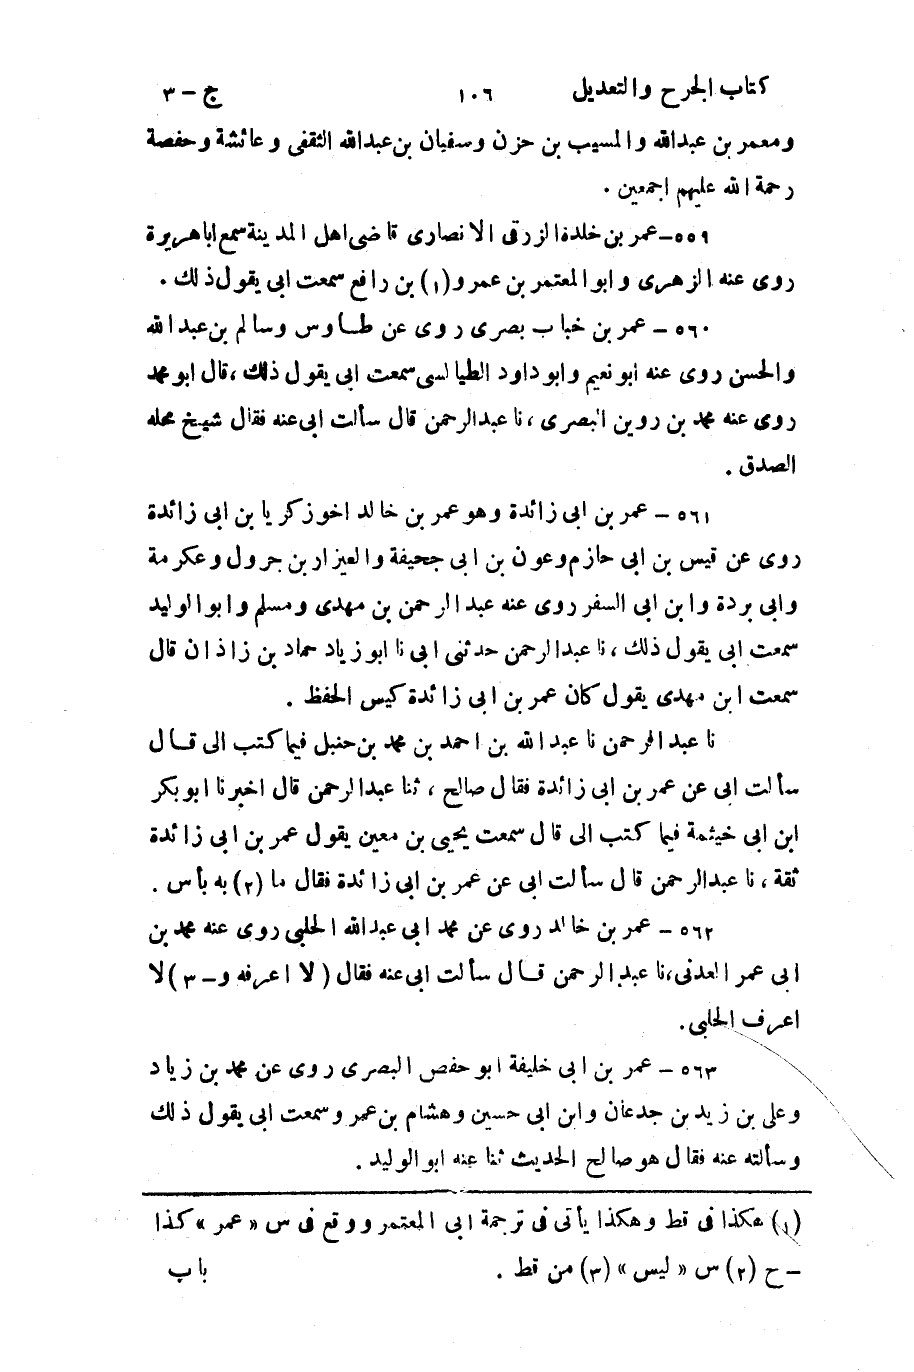 كتاب الجرح والتعديل ١٠٦ ج - ٣
ومعمر بن عبدالله والمسيب بن حزن وسفيان بن عبدالله الثقفى وعائشة وحفصة
رحمة الله عليهم اجمعين .
٥٥٩ - عمر بن خلدة الزرقى الانصارى قاضى اهل المدينة سمع اباهريرة
روى عنه الزهرى وابو المعتمر بن عمرو (١) بن رافع سمعت ابى يقول ذلك .
٥٦٠ - عمر بن خباب بصرى روى عن طاوس وسالم بن عبدالله
والحسن روى عنه ابو نعيم وابو داود الطيالسى سمعت ابى يقول ذلك ، قال ابو محمد
روى عنه محمد بن روين البصرى ، نا عبدالرحمن قال سألت ابى عنه فقال شيخ محله
الصدق .
٥٦١ - عمر بن ابى زائدة وهو عمر بن خالد اخو زكريا بن ابى زائدة
روى عن قيس بن ابى حازم وعون بن ابى جحيفة والعيزار بن جرول وعكرمة
وابى بردة وابن ابى السفر روى عنه عبدالرحمن بن مهدى ومسلم وابو الوليد
سمعت ابى يقول ذلك ، نا عبدالرحمن حدثنى ابى نا ابو زياد حماد بن زاذان قال
سمعت ابن مهدى يقول كان عمر بن ابى زائدة كيس الحفظ .
نا عبدالرحمن نا عبدالله بن احمد بن محمد بن حنبل فيما كتب الى قال
سألت ابى عن عمر بن ابى زائدة فقال صالح ، ثنا عبدالرحمن قال اخبرنا ابو بكر
ابن ابى خيثمة فيما كتب الى قال سمعت يحيى بن معين يقول عمر بن ابى زائدة
ثقة ، نا عبدالرحمن قال سألت ابى عن عمر بن ابى زائدة فقال ما (٢) به بأس .
٥٦٢ - عمر بن خالد روى عن محمد ابى عبدالله الحلبى روى عنه محمد بن
ابى عمر العدنى ، نا عبدالرحمن قال سألت ابى عنه فقال ( لا اعرفه و - ٣ ) لا
اعرف الحلبى .
٥٦٣ - عمر بن ابى خليفة ابو حفص البصرى روى عن محمد بن زياد
وعلى بن زيد بن جدعان وابن ابى حسين وهشام بن عمر وسمعت ابى يقول ذلك
وسألته عنه فقال هو صالح الحديث ثنا عنه ابو الوليد .
(١) هكذا فى قط وهكذا يأتى فى ترجمة ابى المعتمر ووقع فى س « عمر » كذا
- ح (٢) س « ليس » (٣) من قط . باب